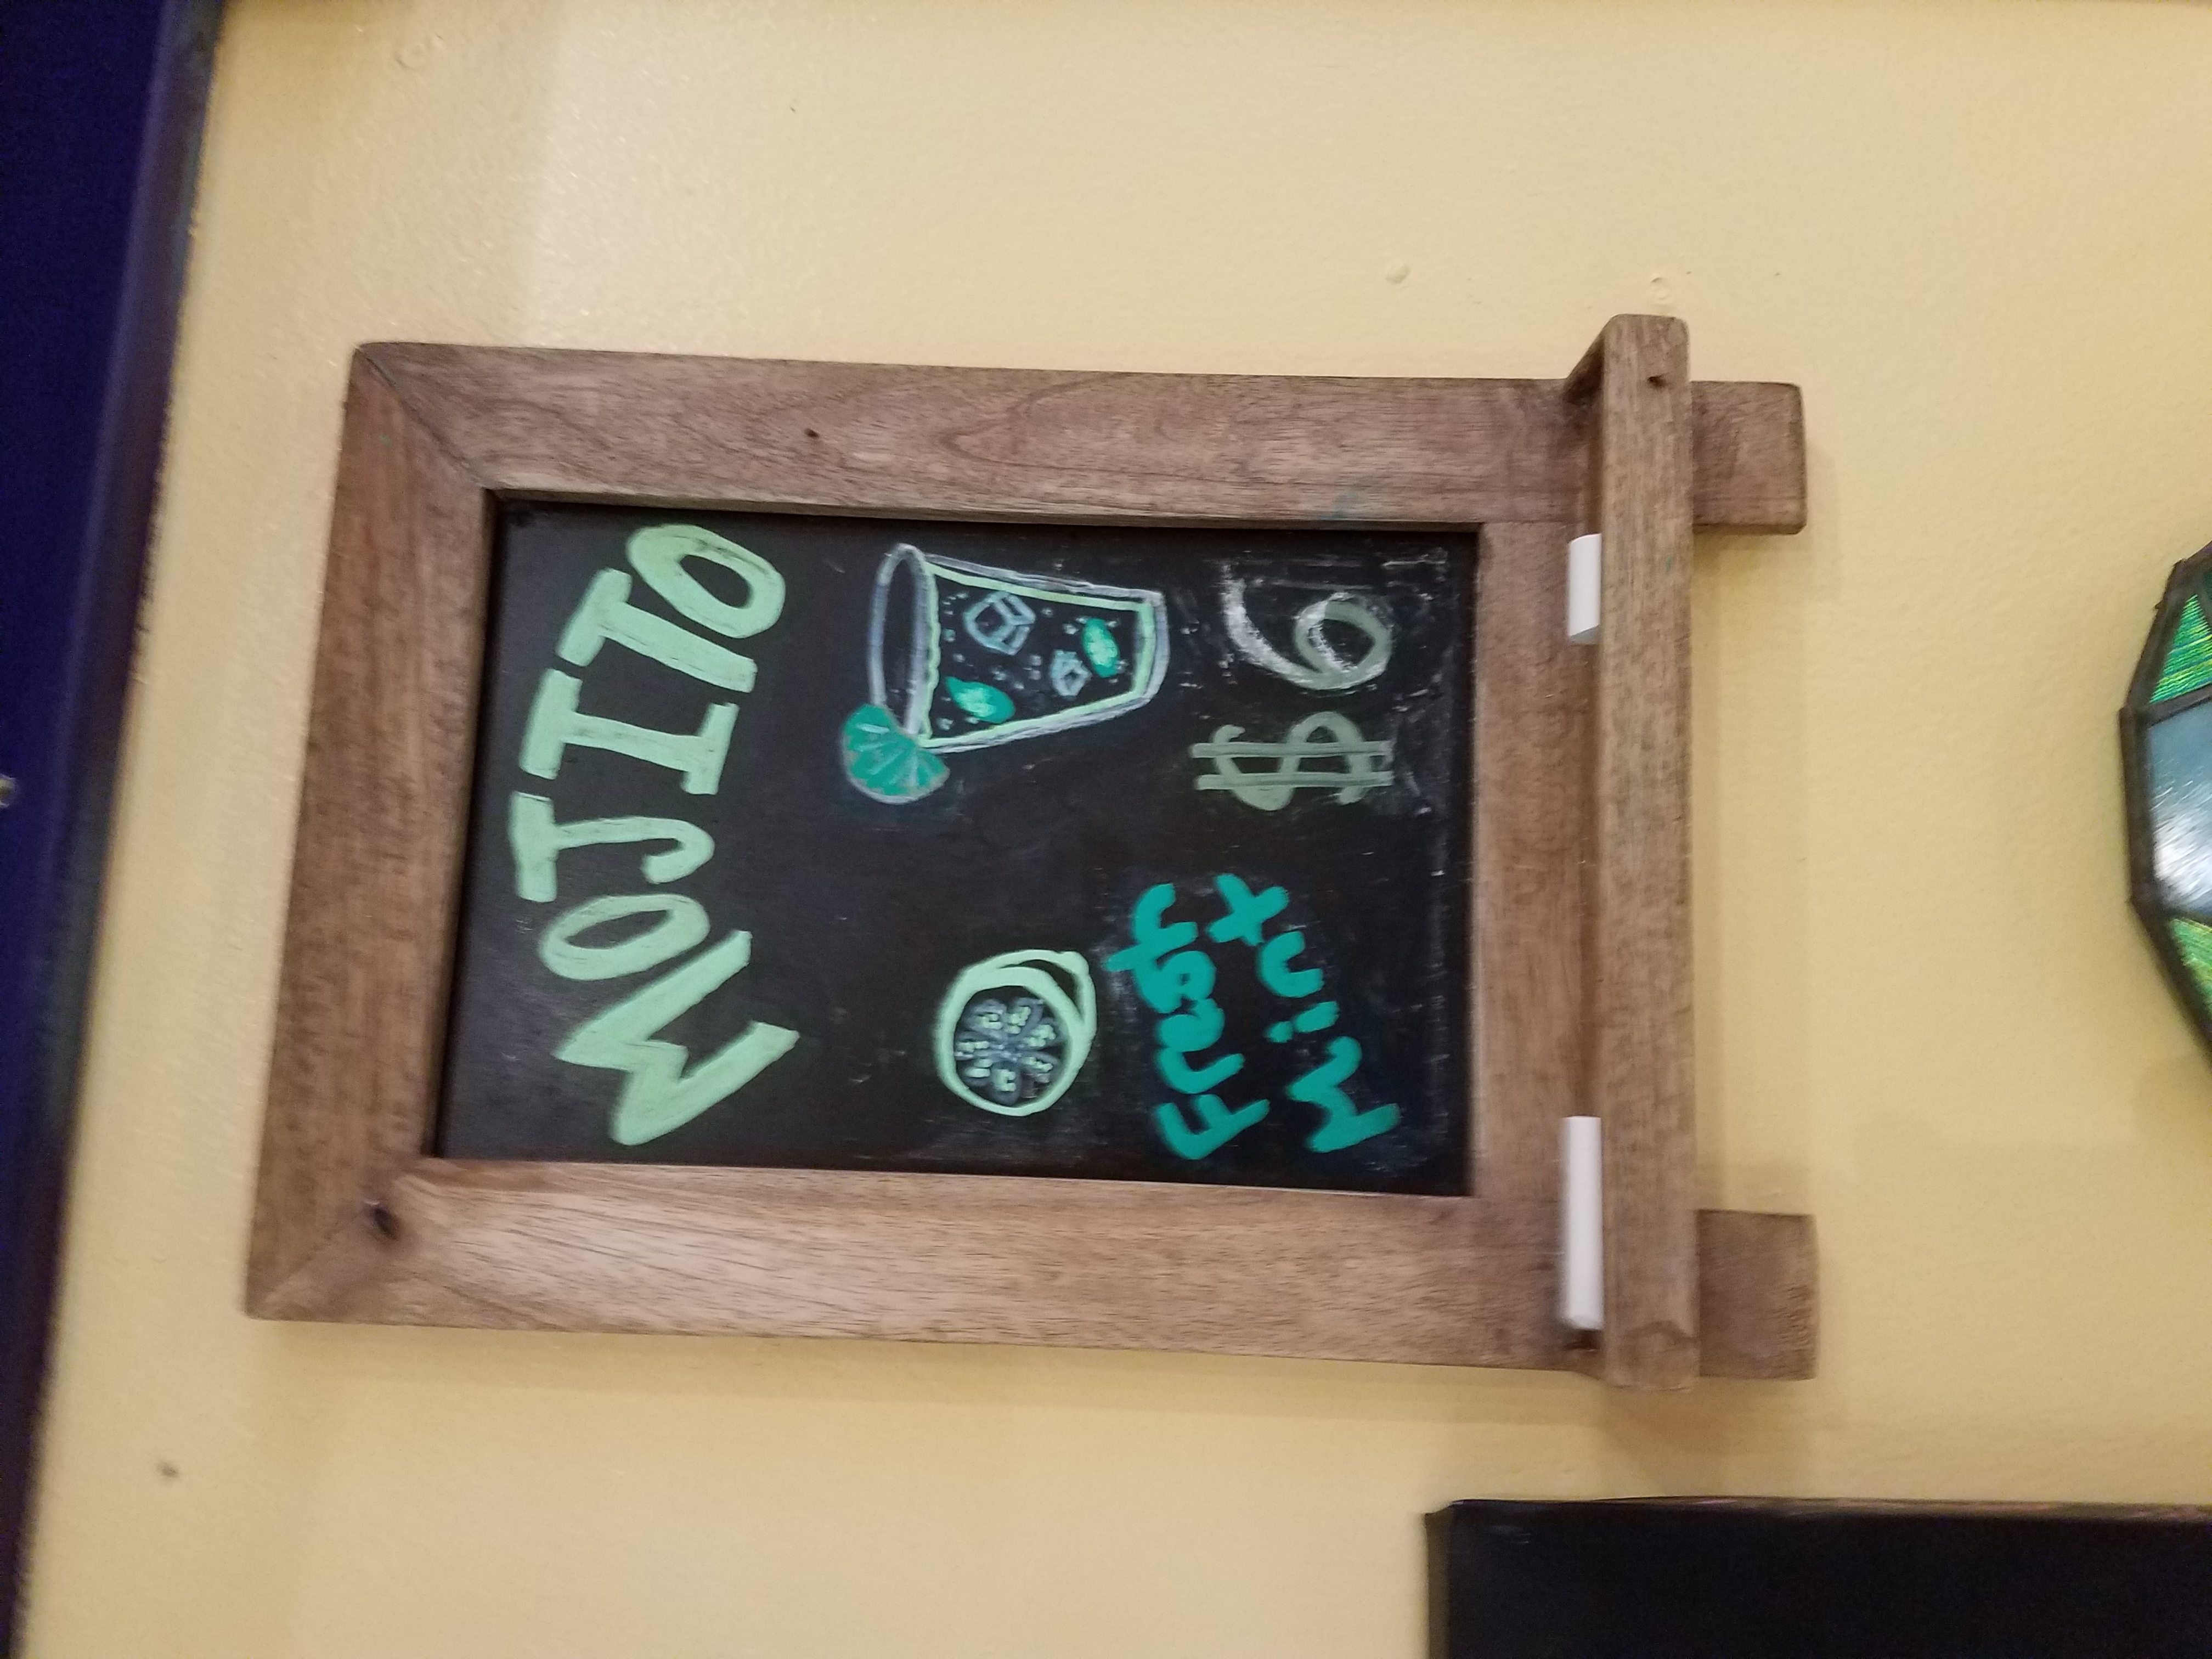 MOJITO
Fresh
Mint
$6